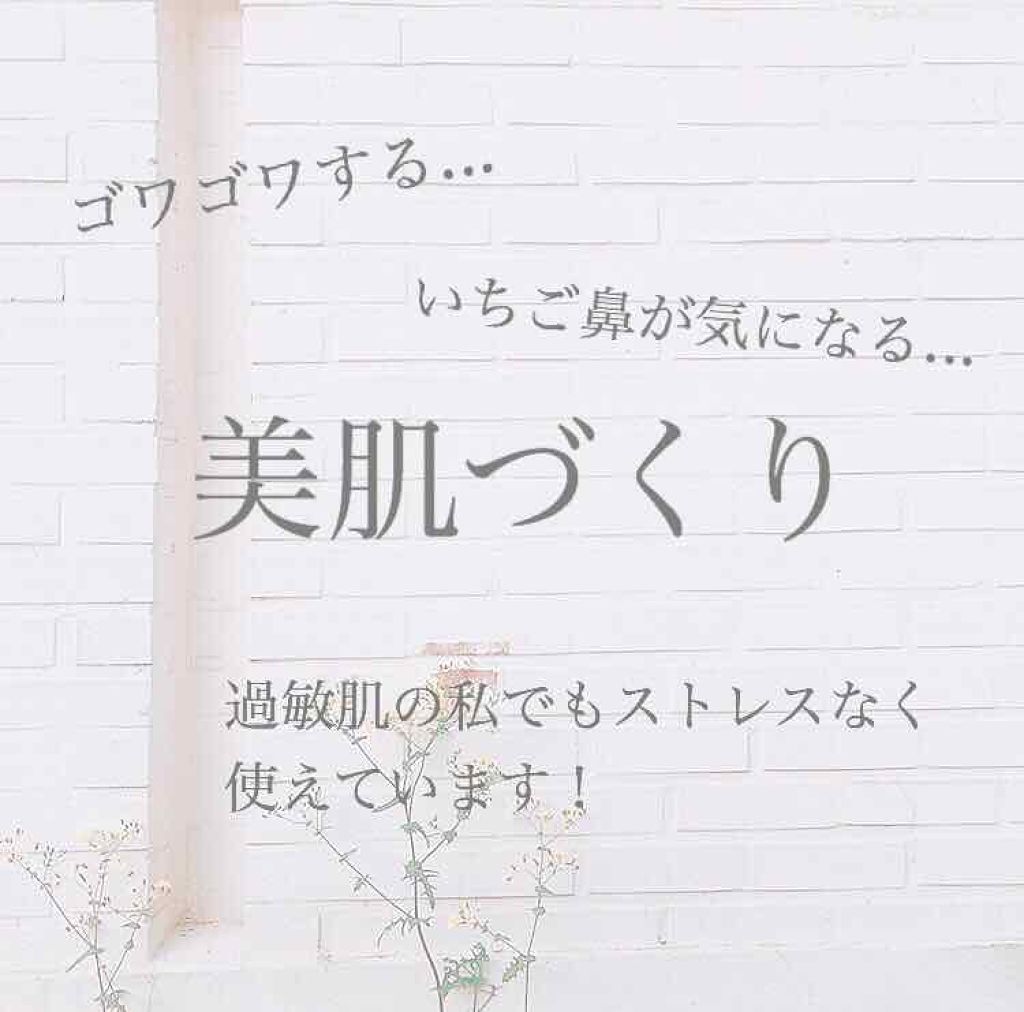 ゴワゴワする...
いちご鼻が気になる...
美肌づくり
過敏肌の私でもストレスなく
使えています！